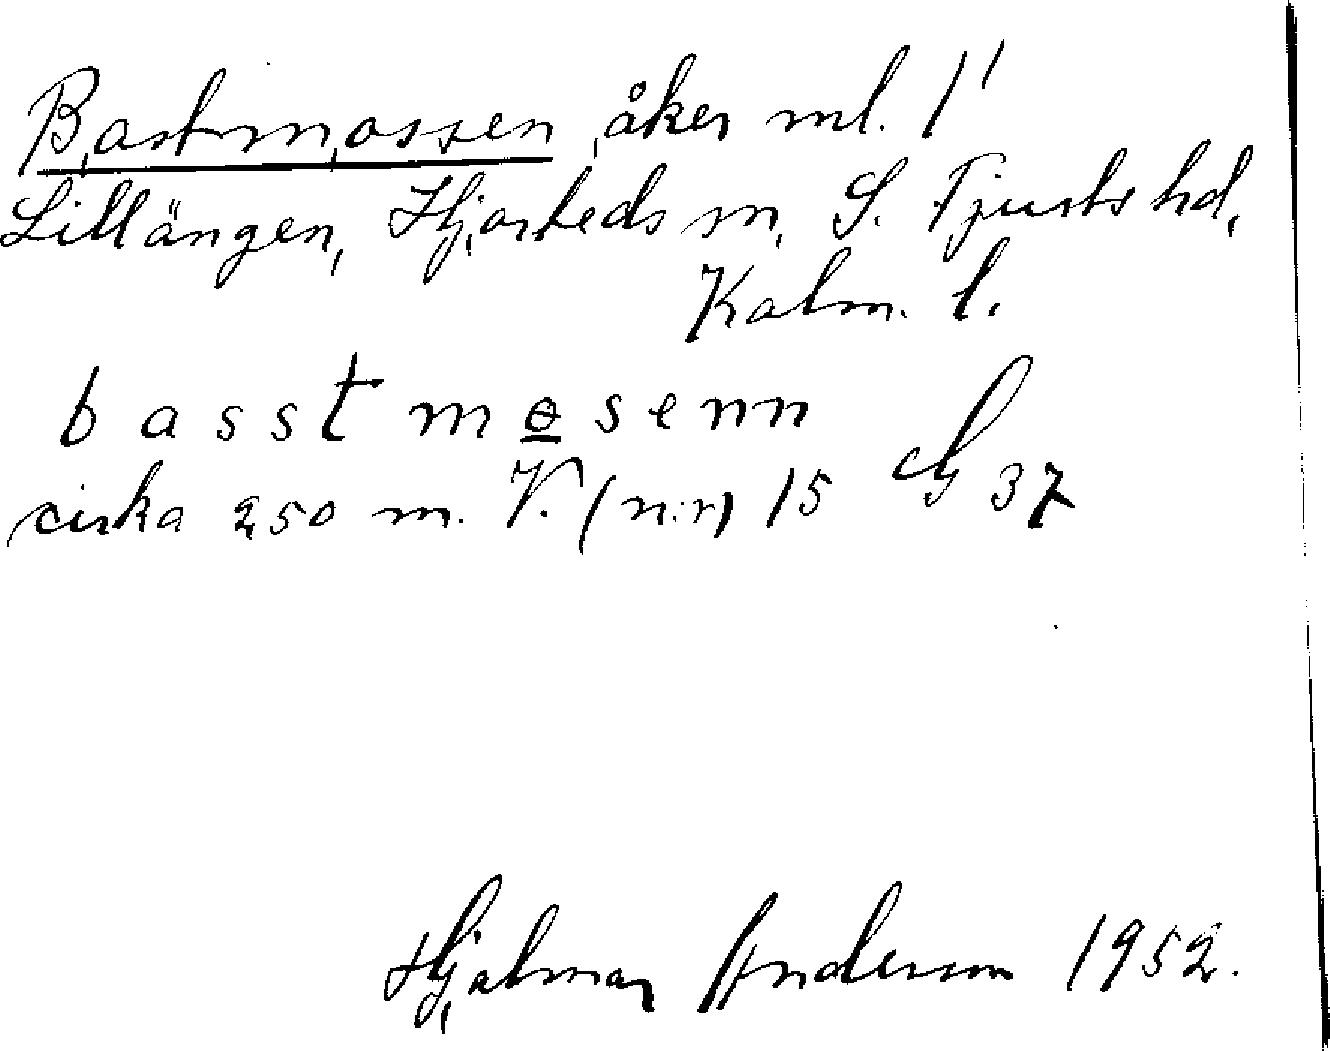 Bastmossen, åker ml. 1'
Lillängen, Hjorteds sn, S. Tjusts hd,
Kalm. l.
basstmøsenn
cirka 250 m. V. (n:r) 15 37
Hjalmar Anderson 1952.